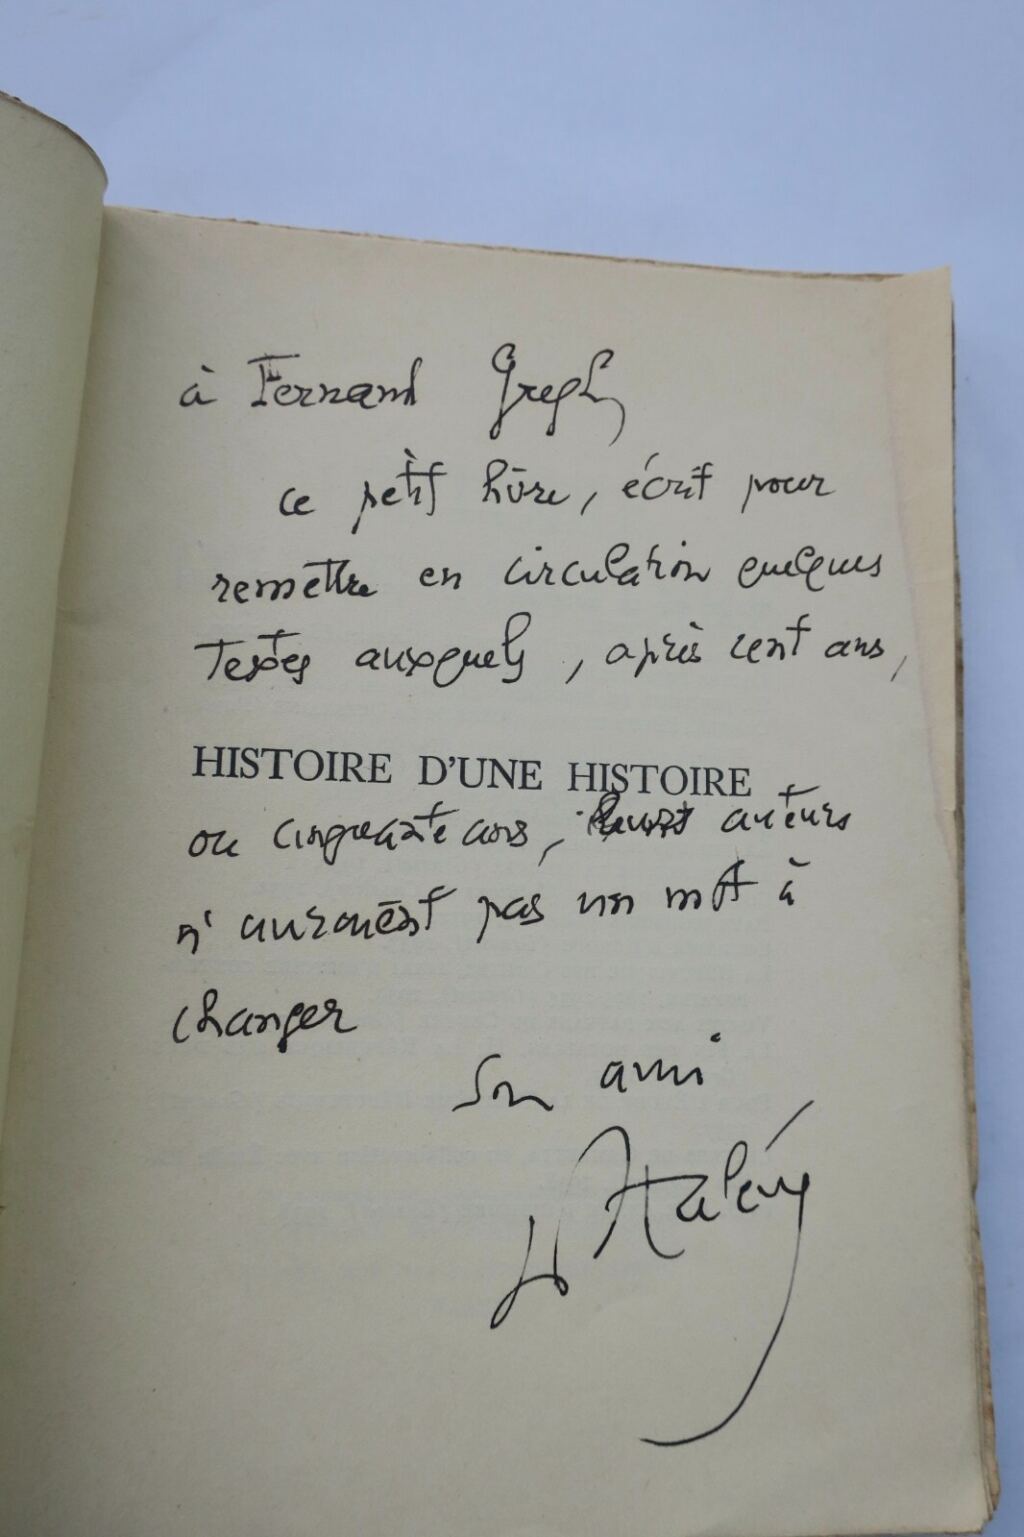 à Fernand Gregh,
ce petit livre, écrit pour
remettre en circulation quelques
textes auxquels, après cent ans,
HISTOIRE D'UNE HISTOIRE
ou cinquante ans, leurs auteurs
n'auraient pas un mot à
changer
Son ami
D Halévy